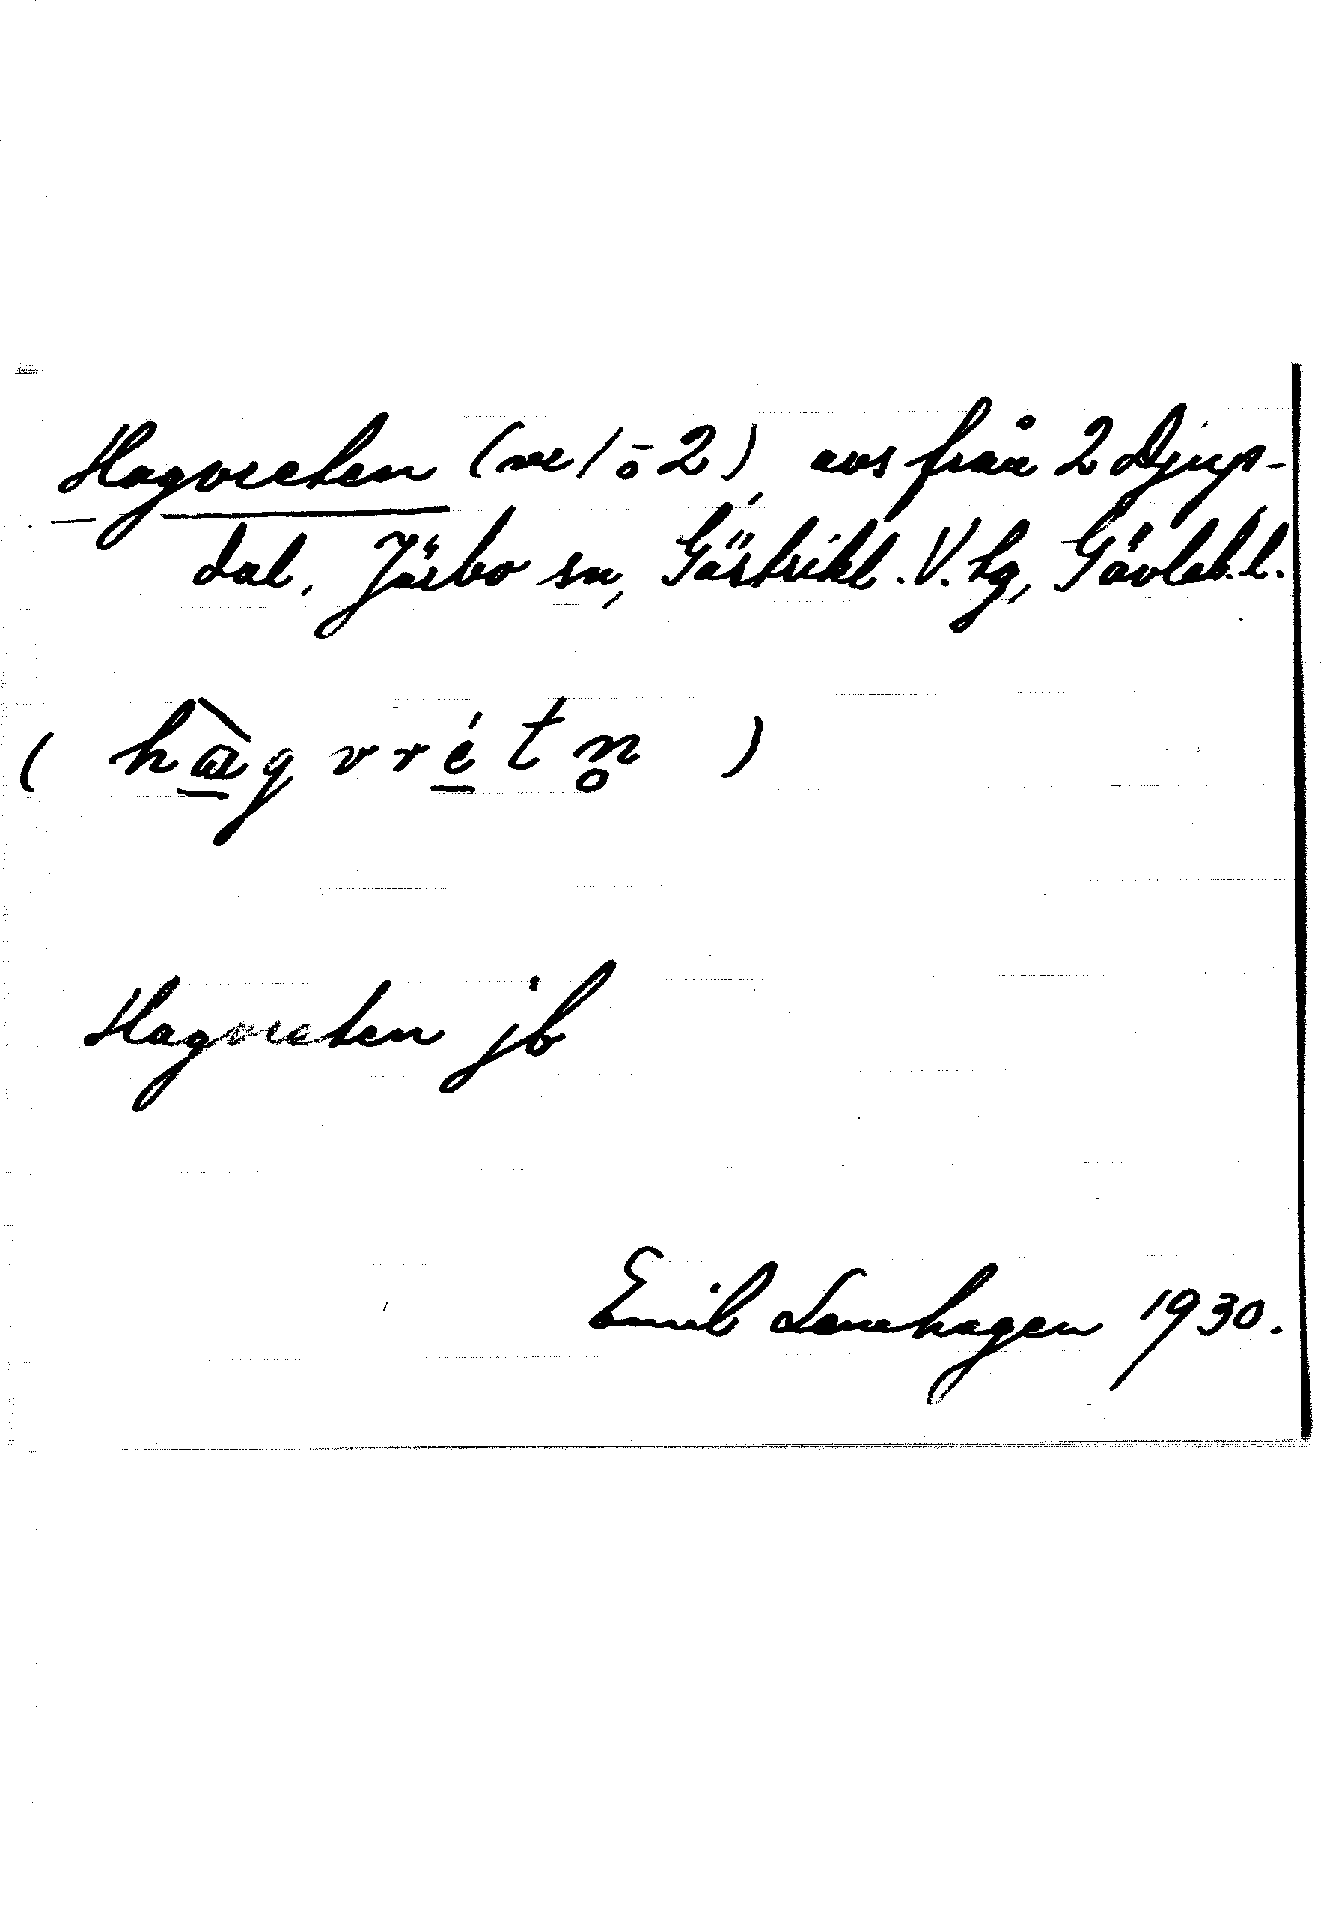 Hagvreten (ve/ō 2) avs från 2 Djup-
dal, Järbo sn, Gästrikl. V. tg, Gävleb. l.
( hâ̱gvré̱tn̥ )
Hagvreten jb
Emil 1930.